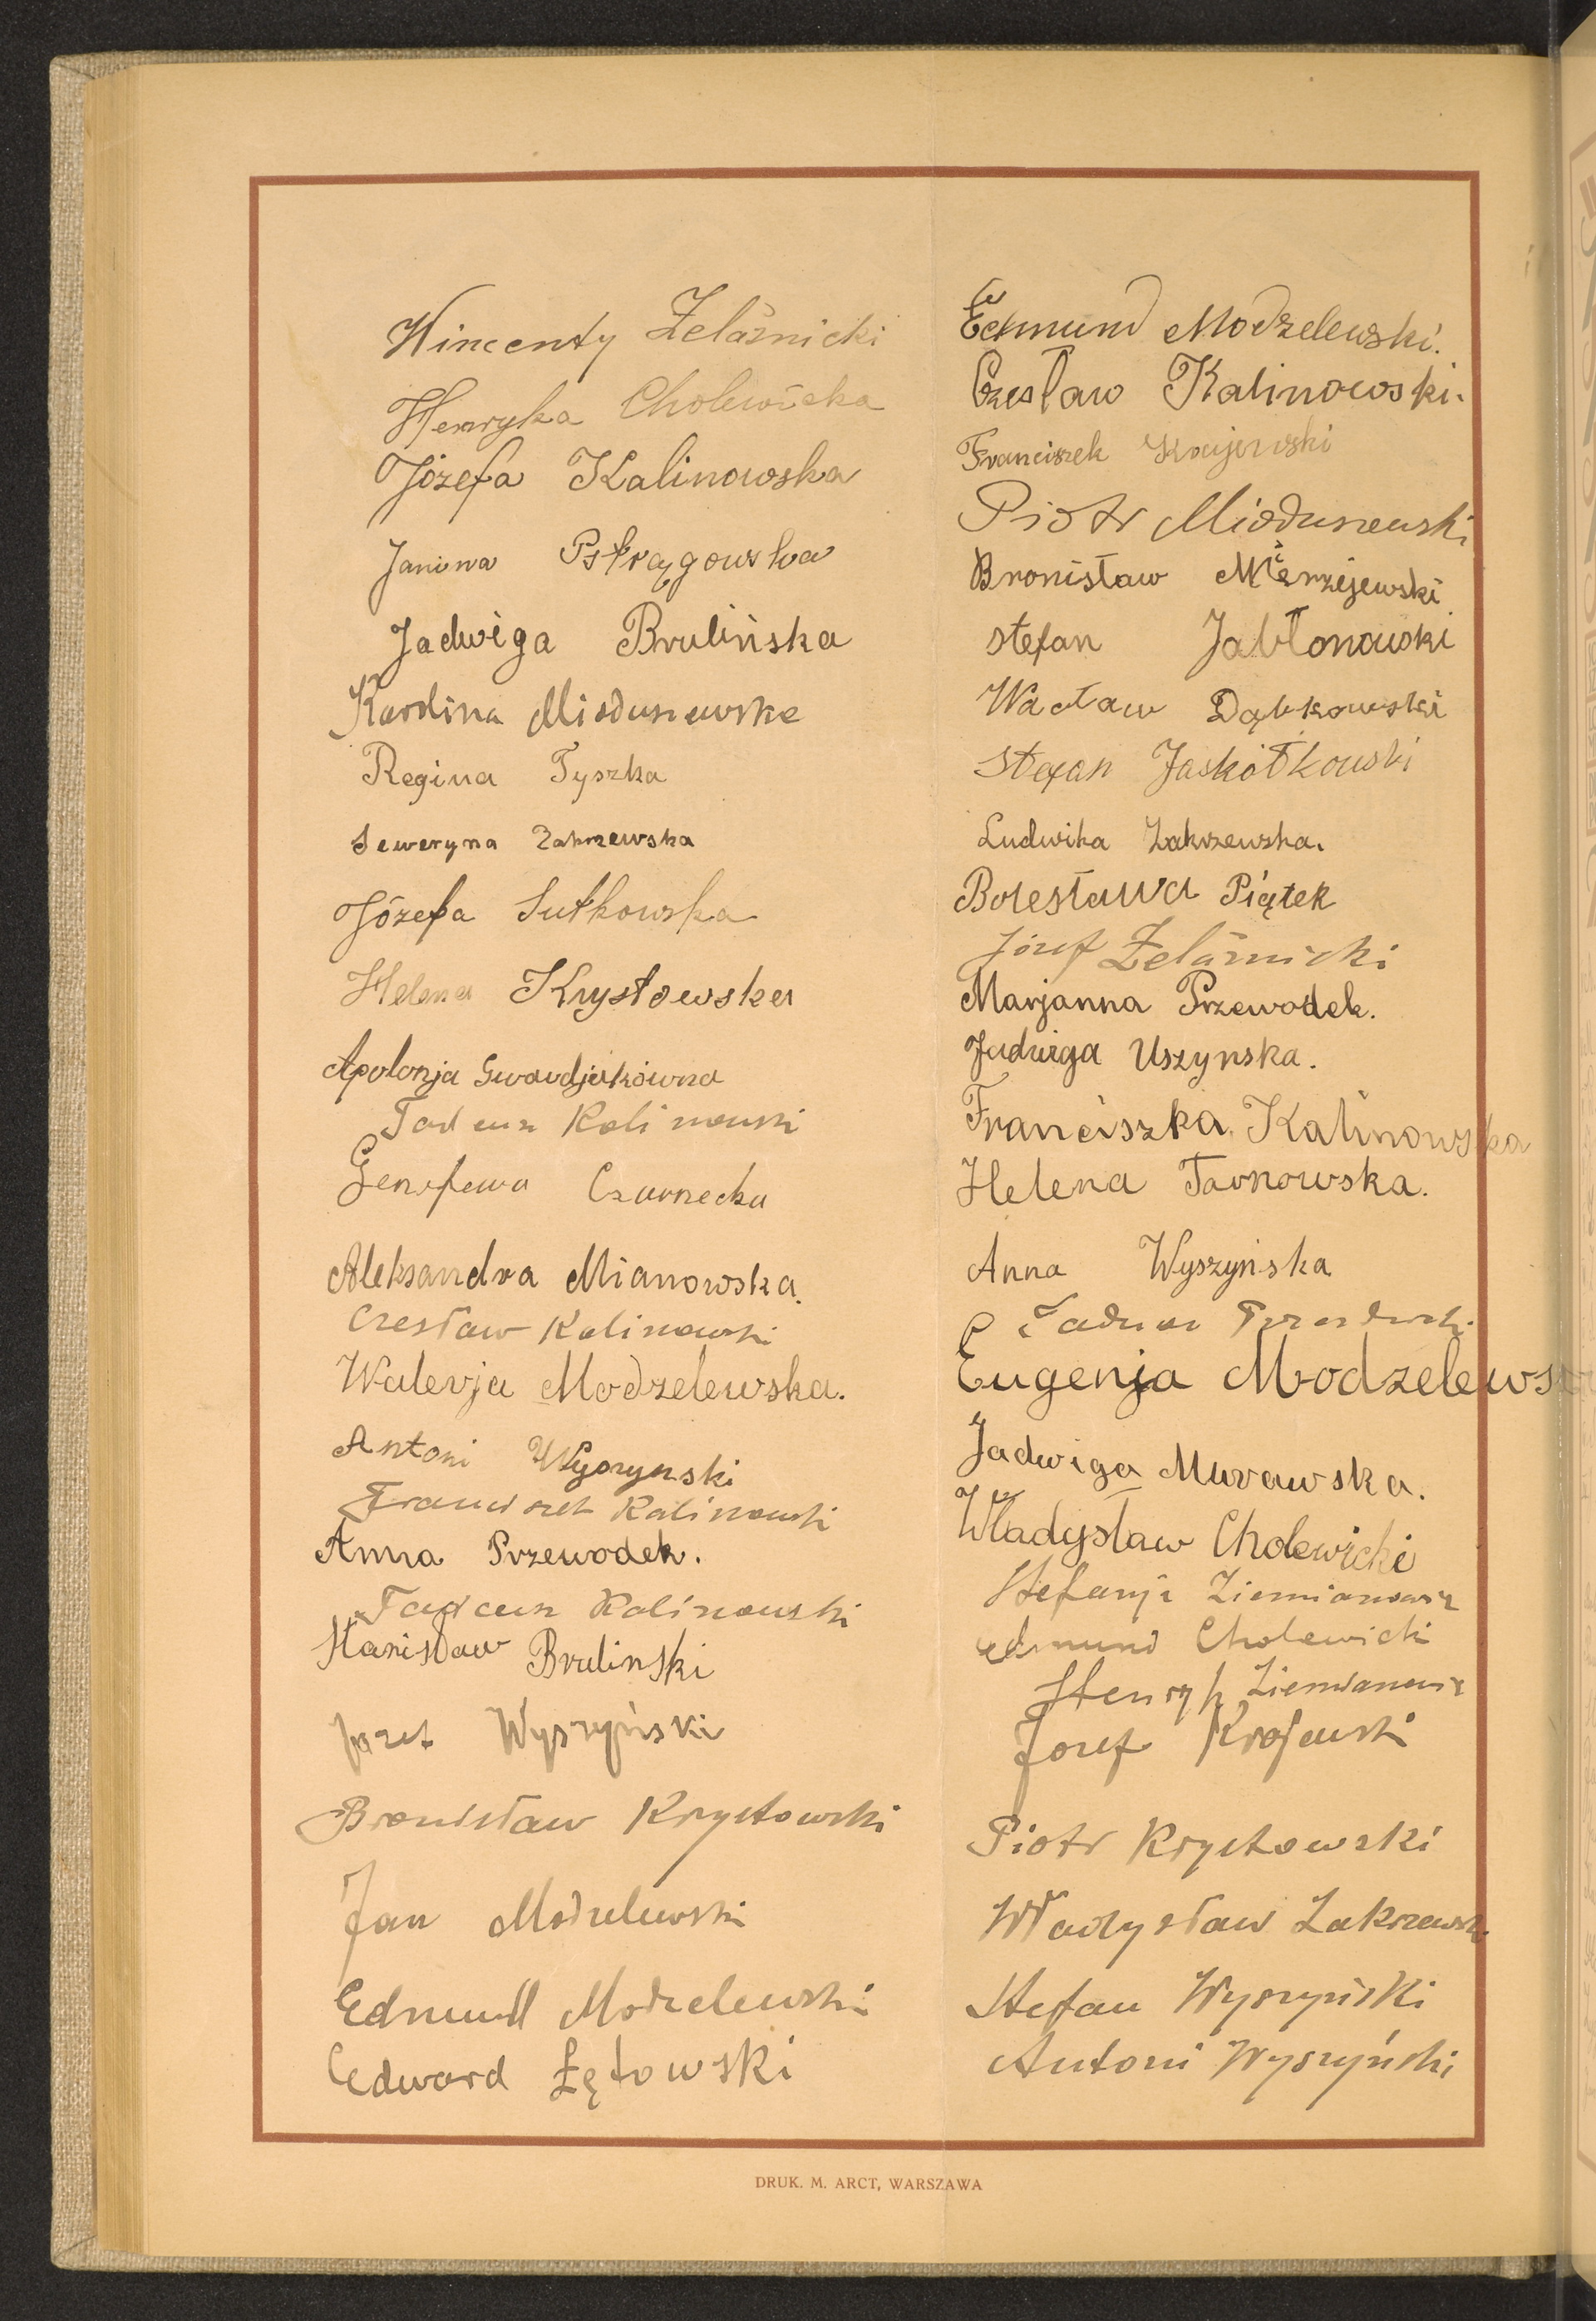 Wincenty Żelaźnicki
Henryka Cholewicka
Józefa Kalinowska
Janina Pstrągowska
Jadwiga Brulińska
Karolina Mioduszewska
Regina Tyszka
Seweryna Zakrzewska
Józefa Sutkowska
Helena Krystowska
Apolonja Gwardjakówna
Tadeusz Kalinowski
Genofewa Czarnecka
Aleksandra Mianowska.
Czesław Kalinowski
Walerja Modzelewska.
Antoni Wyszynski
Franciszek Kalinowski
Anna Przewodek.
Tadeusz Kalinowski
Stanisław Brulinski
Józef Wyszyński
Bronisław Krystowski
Jan Modzelewski
Edmund Modzelewski
Edward Łętowski
Edmund Modzelewski.
Czesław Kalinowski.
Franciszek Krajewski
Piotr Mioduszewski
Bronisław Mierzejewski
Stefan Jabłonowski
Wacław Dąbkowski
Stefan Jaskółkowski
Ludwika Zakrzewska.
Bolesława Piątek
Józef Żelaźnicki
Marjanna Przewodek.
Jadwiga Uszynska.
Franciszka Kalinowska
Helena Tarnowska.
Anna Wyszyńska
Eugenja Modzelews
Jadwiga Murawska.
Władysław Cholewicki
Stefanja Ziemianowicz
Edmund Cholewicki
Henryk Ziemianowicz
Józef Krajewski
Piotr Krystowski
Władysław Zakrzewski
Stefan Wyszyński
Antoni Wyszyński
DRUK. M. ARCT, WARSZAWA